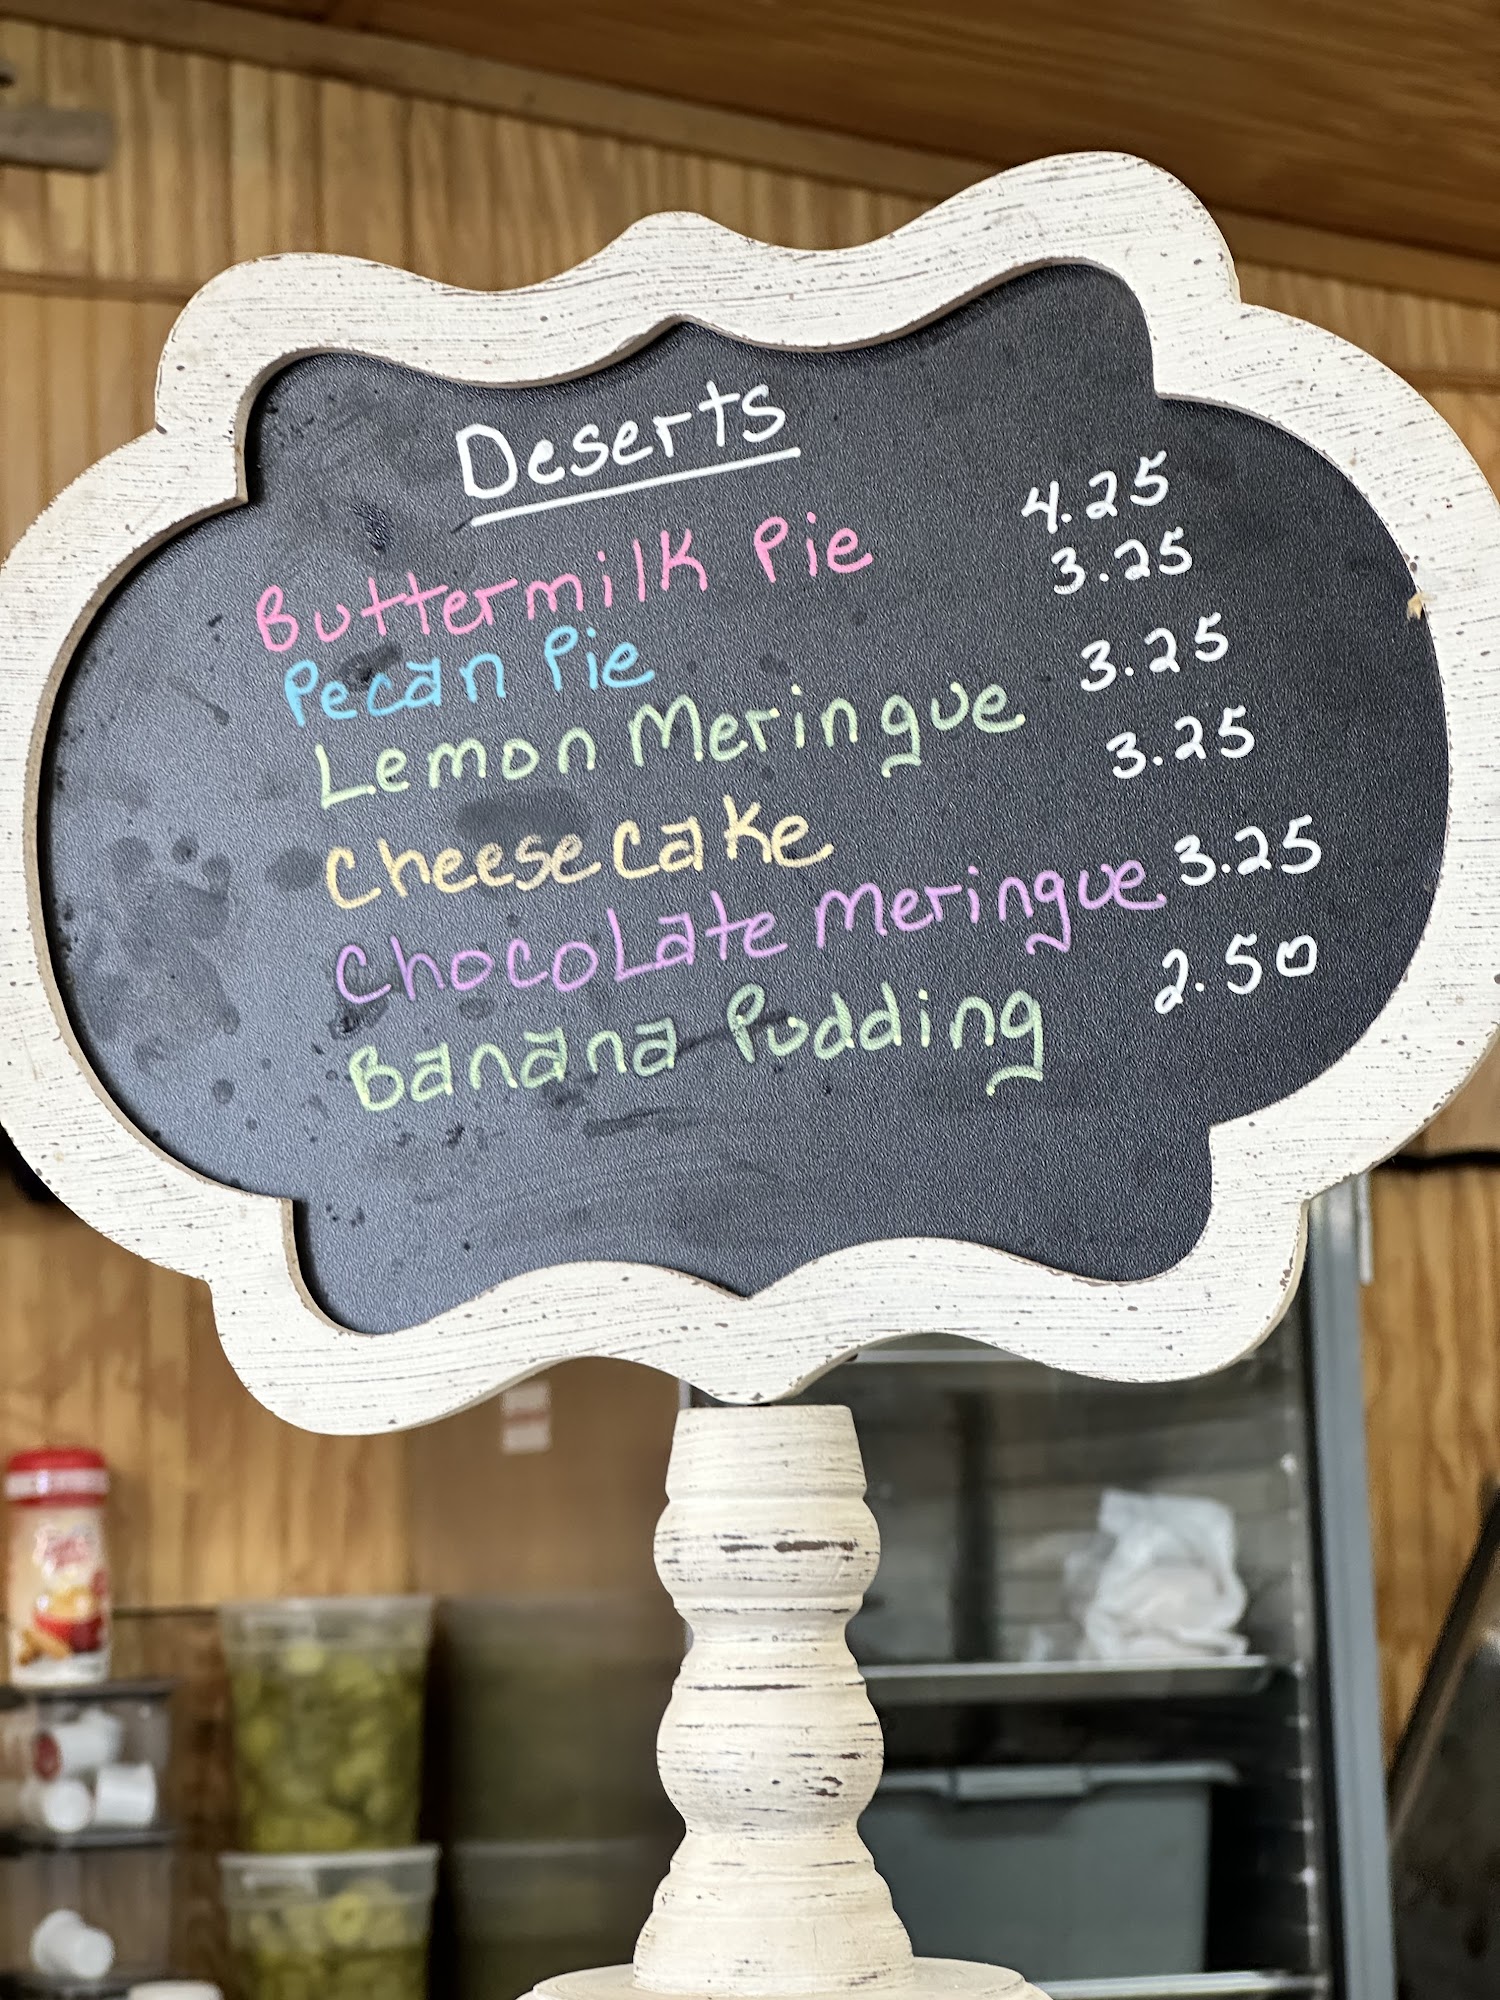 Deserts
Buttermilk Pie 4.25
Pecan Pie 3.25
Lemon Meringue 3.25
Cheese cake 3.25
Chocolate Meringue 3.25
Banana Pudding 2.50